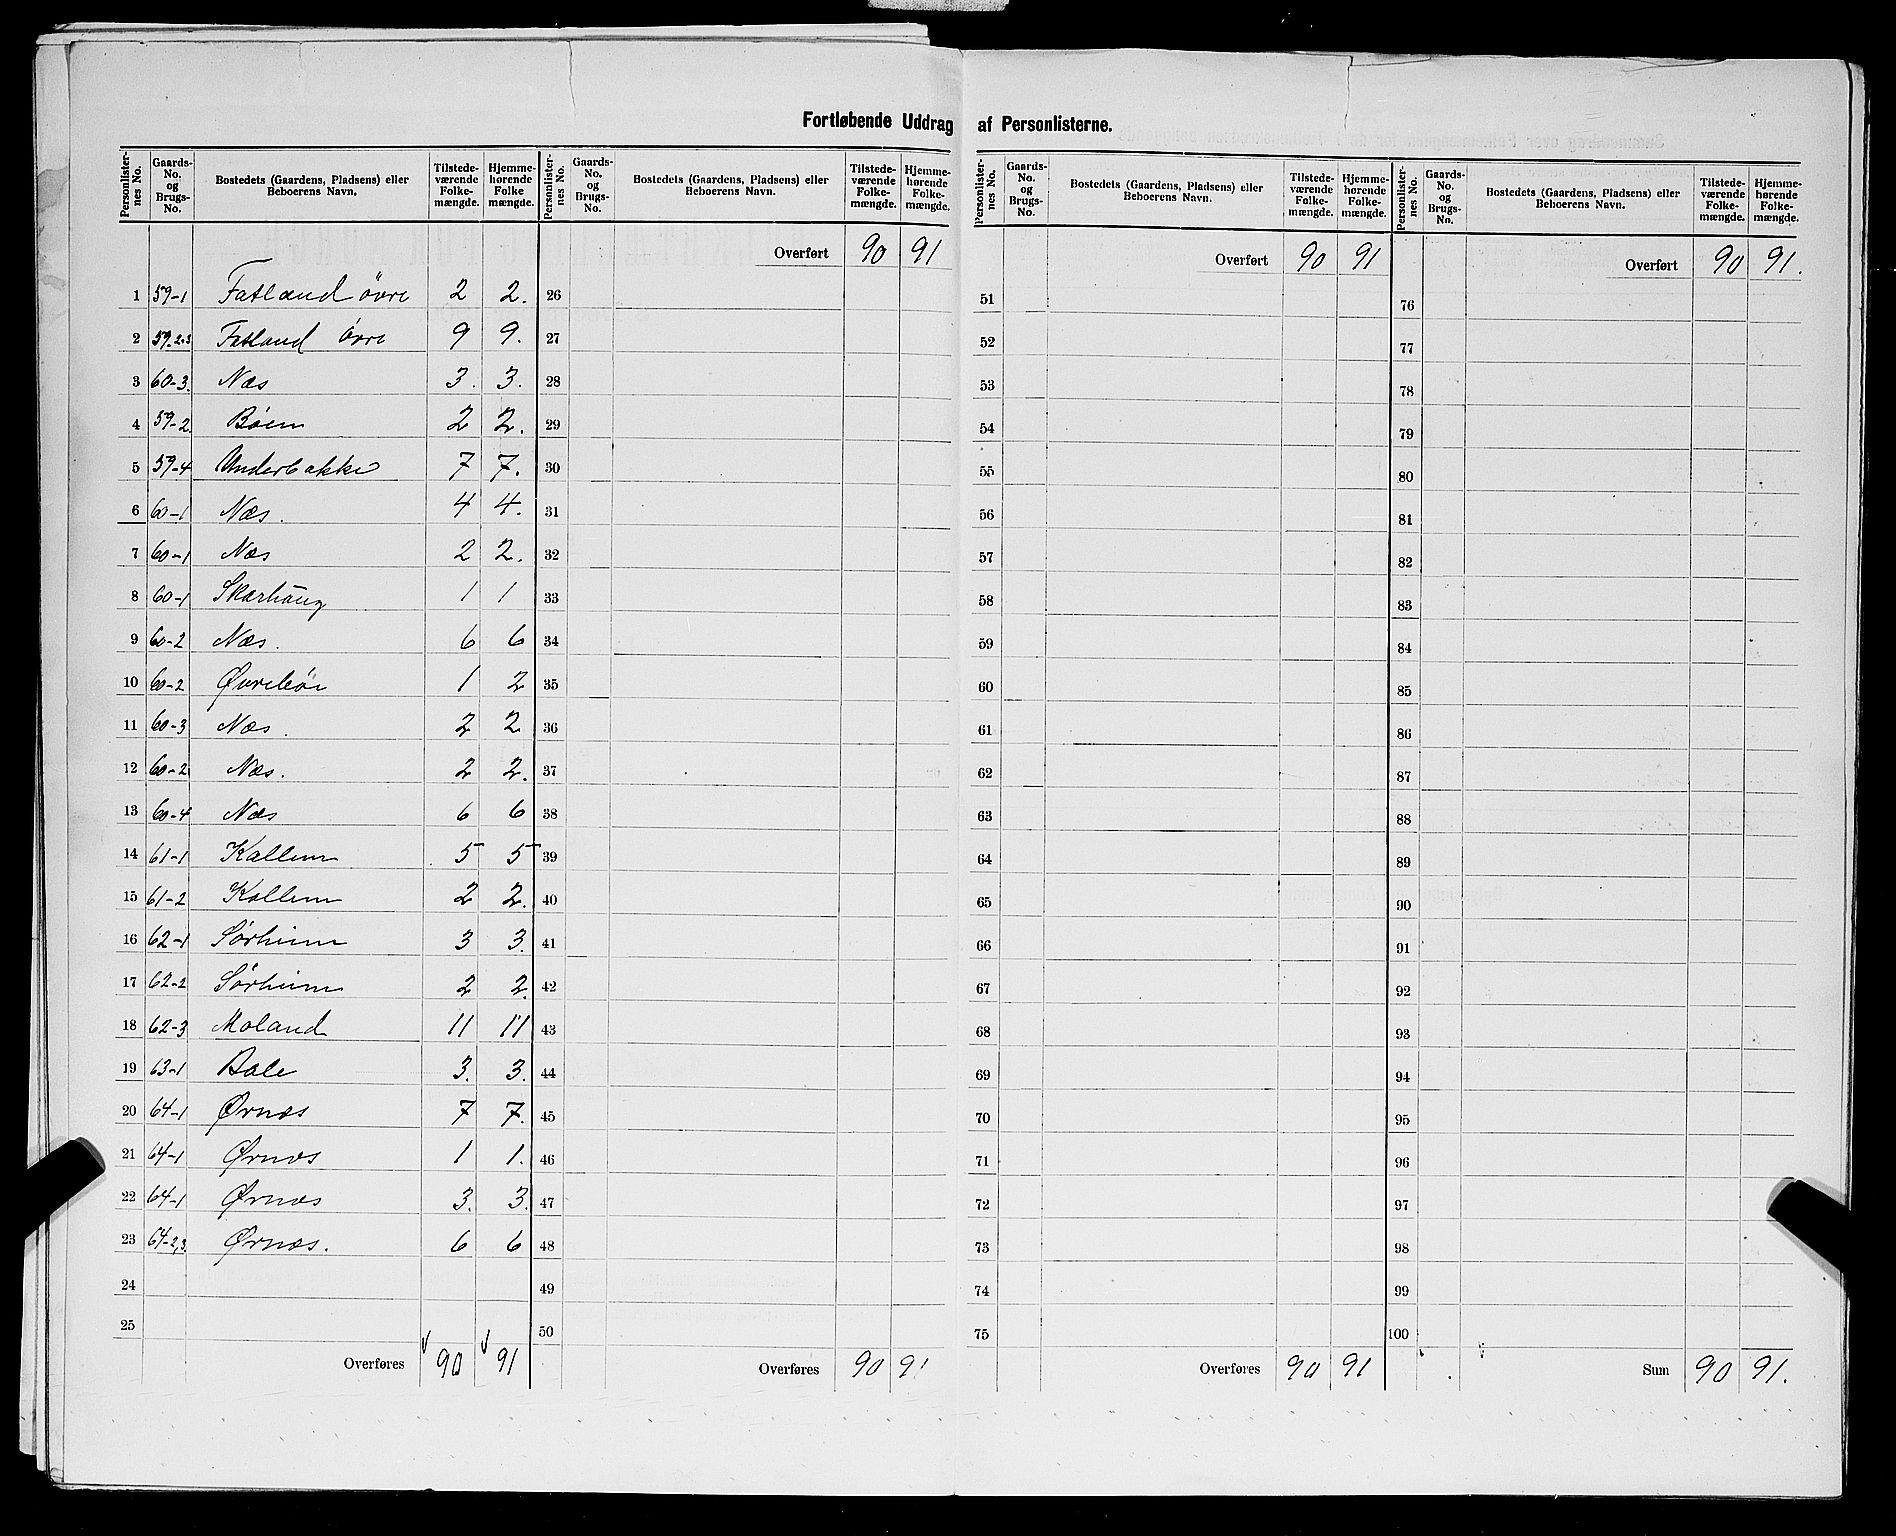 Fortløbende Uddrag af Personlisterne.
Personlisternes No. Gaards-No. og Brugs-No. Bostedets (Gaardens, Pladsens) eller Beboerens Navn. Tilstedeværende Folkemængde. Hjemmehørende Folkemængde.
1 59-1 Fatland övre 2 2.
2 59.2.3 Fatland övre 9 9.
3 60-3. Næs 3. 3.
4 59-2. Böen 2 2.
5 59-4 Underbakke 7 7.
6 60-1 Næs. 4 4.
7 60-1 Næs 2 2.
8 60-1 Skarhaug 1 1
9 60-2 Næs. 6 6
10 60-2 Øvreböe 1 2
11 60-3 Næs. 2 2
12 60-2 Næs. 2 2.
13 60-4 Næs 6 6
14 61-1 Kallem 5 5
15 61-2 Kallem 2 2.
16 62-1 Sörheim 3 3.
17 62-2 Sörheim 2 2.
18 62-3 Moland 11 11
19 63-1 Dale 3. 3.
20 64-1 Ørnæs 7 7.
21 64-1 Ørnæs 1 1.
22 64-1 Ørnæs 3. 3.
23 64-2,3. Ørnæs. 6 6
24
25
Overføres 90 91
Personlisternes No. Gaards-No. og Brugs-No. Bostedets (Gaardens, Pladsens) eller Beboerens Navn. Tilstedeværende Folkemængde. Hjemmehørende Folkemængde.
Overført 90 91
26
27
28
29
30
31
32
33
34
35
36
37
38
39
40
41
42
43
44
45
46
47
48
49
50
Overføres 90 91
Personlisternes No. Gaards-No. og Brugs-No. Bostedets (Gaardens, Pladsens) eller Beboerens Navn. Tilstedeværende Folkemængde. Hjemmehørende Folkemængde.
Overført 90 91
51
52
53
54
55
56
57
58
59
60
61
62
63
64
65
66
67
68
69
70
71
72
73
74
75
Overføres 90 91
Personlisternes No. Gaards-No. og Brugs-No. Bostedets (Gaardens, Pladsens) eller Beboerens Navn. Tilstedeværende Folkemængde. Hjemmehørende Folkemængde.
Overført 90 91.
76
77
78
79
80
81
82
83
84
85
86
87
88
89
90
91
92
93
94
95
96
97
98
99
100
Sum 90 91.